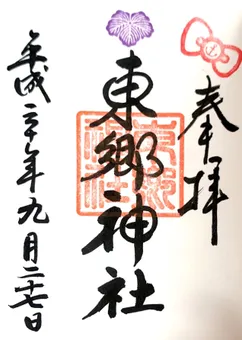 奉拝
東郷神社
平成三十年九月二十七日